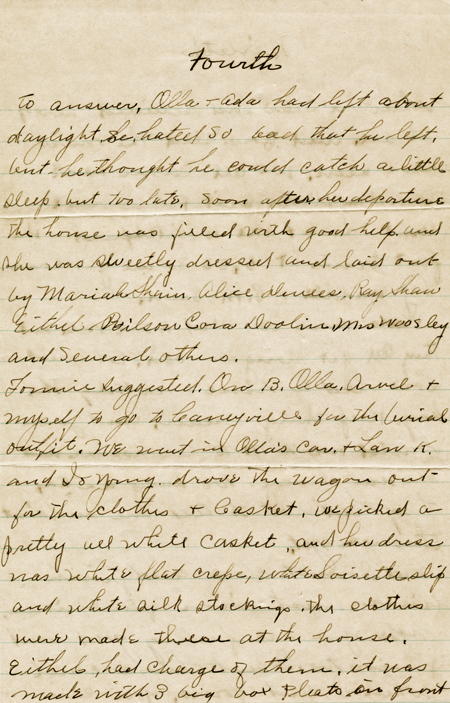 Fourth
to answer, Olla + Ada had left about
daylight, he hated so bad that he left,
but he thought he could catch a little
sleep. but too late, soon after her departure
the house was filled with good help and
she was sweetly dressed and laid out
by Mariah Shain, Alice, Ray Shaw
Eithel Wilson Cora Doolin, Mrs Woosley
and several others.
Tommie suggested. On B. Olla, Arvel +
myself to go to Caneyville for the burial
outfit. We went in Olla's car. + Law K.
and Is Young. drove the wagon out
for the clothes + Casket, we picked a
pretty all white casket, and her dress
was white flat crepe, white Soisette slip
and white silk stockings. the clothes
were made there at the house.
Eithel, had charge of them, it was
made with 3 big box Pleats on front